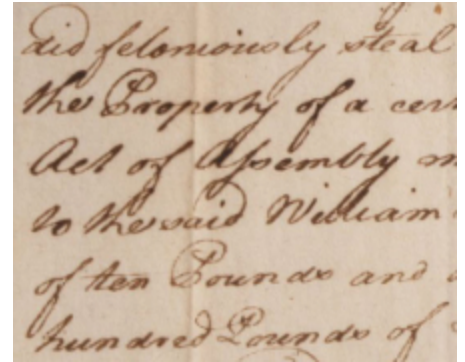 did feloniously steal
the Property of a cer
Act of Assembly m
to the said William
of ten Pounds and
hundred Pounds of